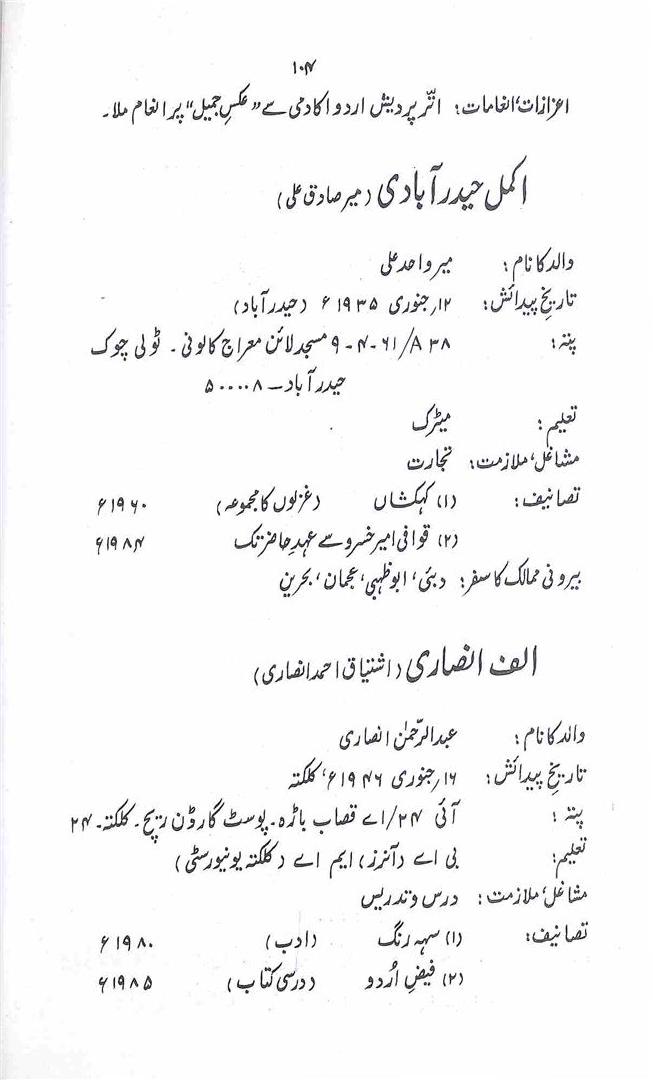 ۱۰۴
اعزازات، انعامات: اتّر پردیش اردو اکادمی سے "عکسِ جمیل" پر انعام ملا۔
اکمل حیدرآبادی (میر صادق علی)
والد کا نام: میر واحد علی
تاریخِ پیدائش: ۱۲؍ جنوری ۱۹۳۵ء (حیدرآباد)
پتہ: ۳۸ A/۶۱-۴-۹ مسجد لائن معراج کالونی۔ ٹولی چوک
حیدرآباد۔ ۵۰۰۰۰۸
تعلیم: میٹرک
مشاغل، ملازمت: تجارت
تصانیف: (۱) کہکشاں (غزلوں کا مجموعہ) ۱۹۶۰ء
(۲) قوالی امیر خسرو سے عہدِ حاضر تک ۱۹۸۴ء
بیرونی ممالک کا سفر: دبئی، ابوظہبی، عجمان، بحرین
الف انصاری (اشتیاق احمد انصاری)
والد کا نام: عبدالرّحمٰن انصاری
تاریخِ پیدائش: ۱۶؍ جنوری ۱۹۴۶ء، کلکتہ
پتہ: آئی ۲۴/اے قصاب باڑہ۔ پوسٹ گارڈن ریچ۔ کلکتہ۔ ۲۴
تعلیم: بی اے (آنرز) ایم اے (کلکتہ یونیورسٹی)
مشاغل، ملازمت: درس و تدریس
تصانیف: (۱) سہہ رنگ (ادب) ۱۹۸۰ء
(۲) فیضِ اُردو (درسی کتاب) ۱۹۸۵ء